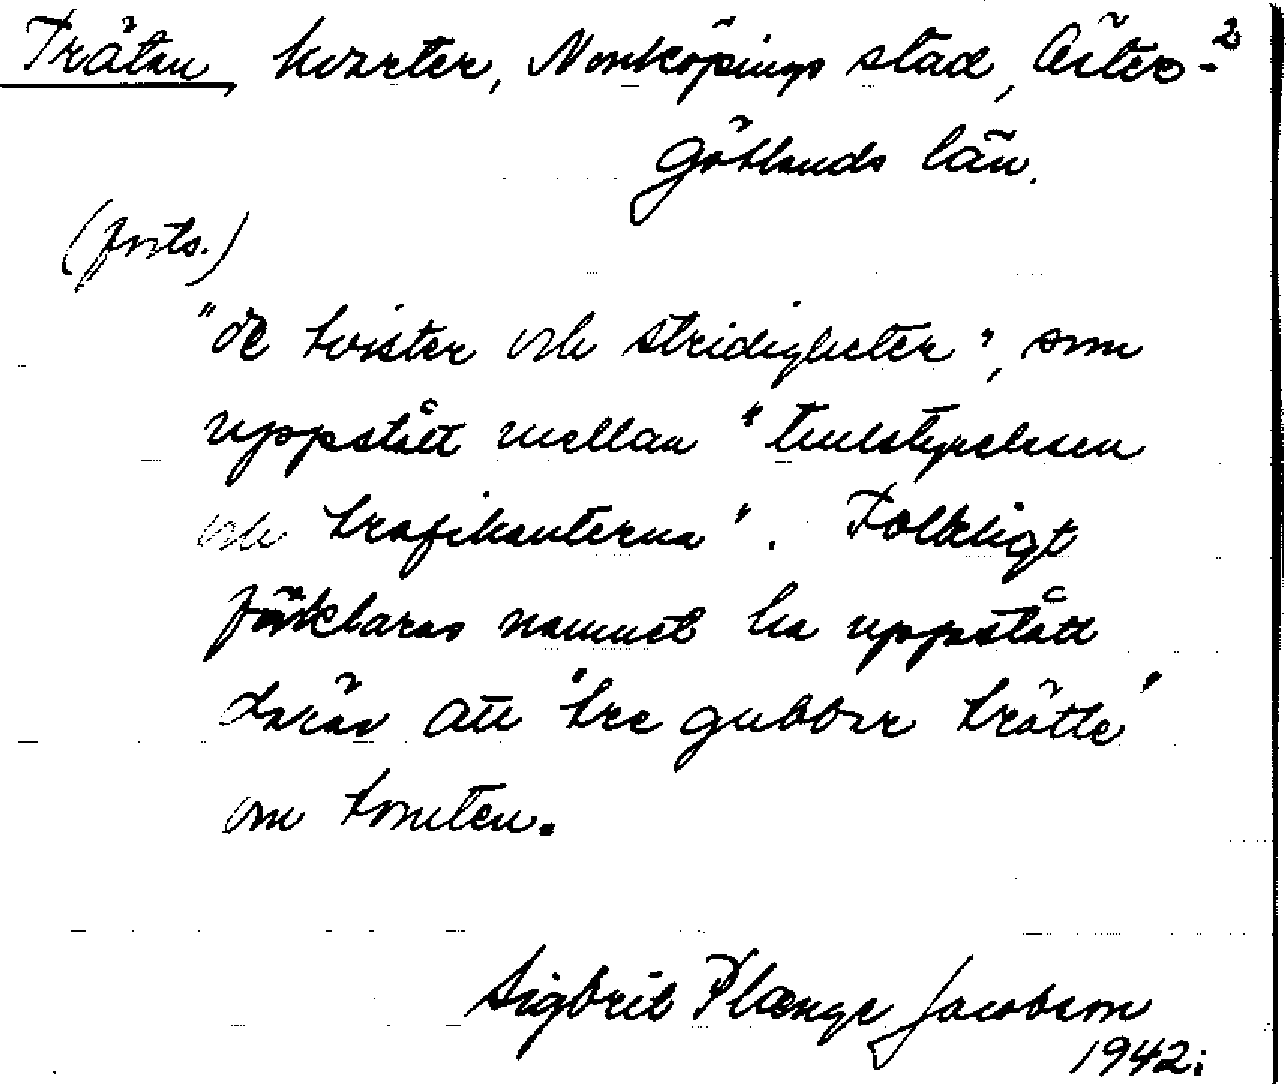 Trätan, kvarter, Norrköpings stad, Öster- 2
götlands län.
(forts.)
"de tvister och stridigheter", som
uppstått mellan "tullstyrelsen
och trafikanterna". Folkligt
förklaras namnet ha uppstått
därav att "tre gubbar trätte"
om tomten.
Sigbrit Plænge Jacobson
1942.